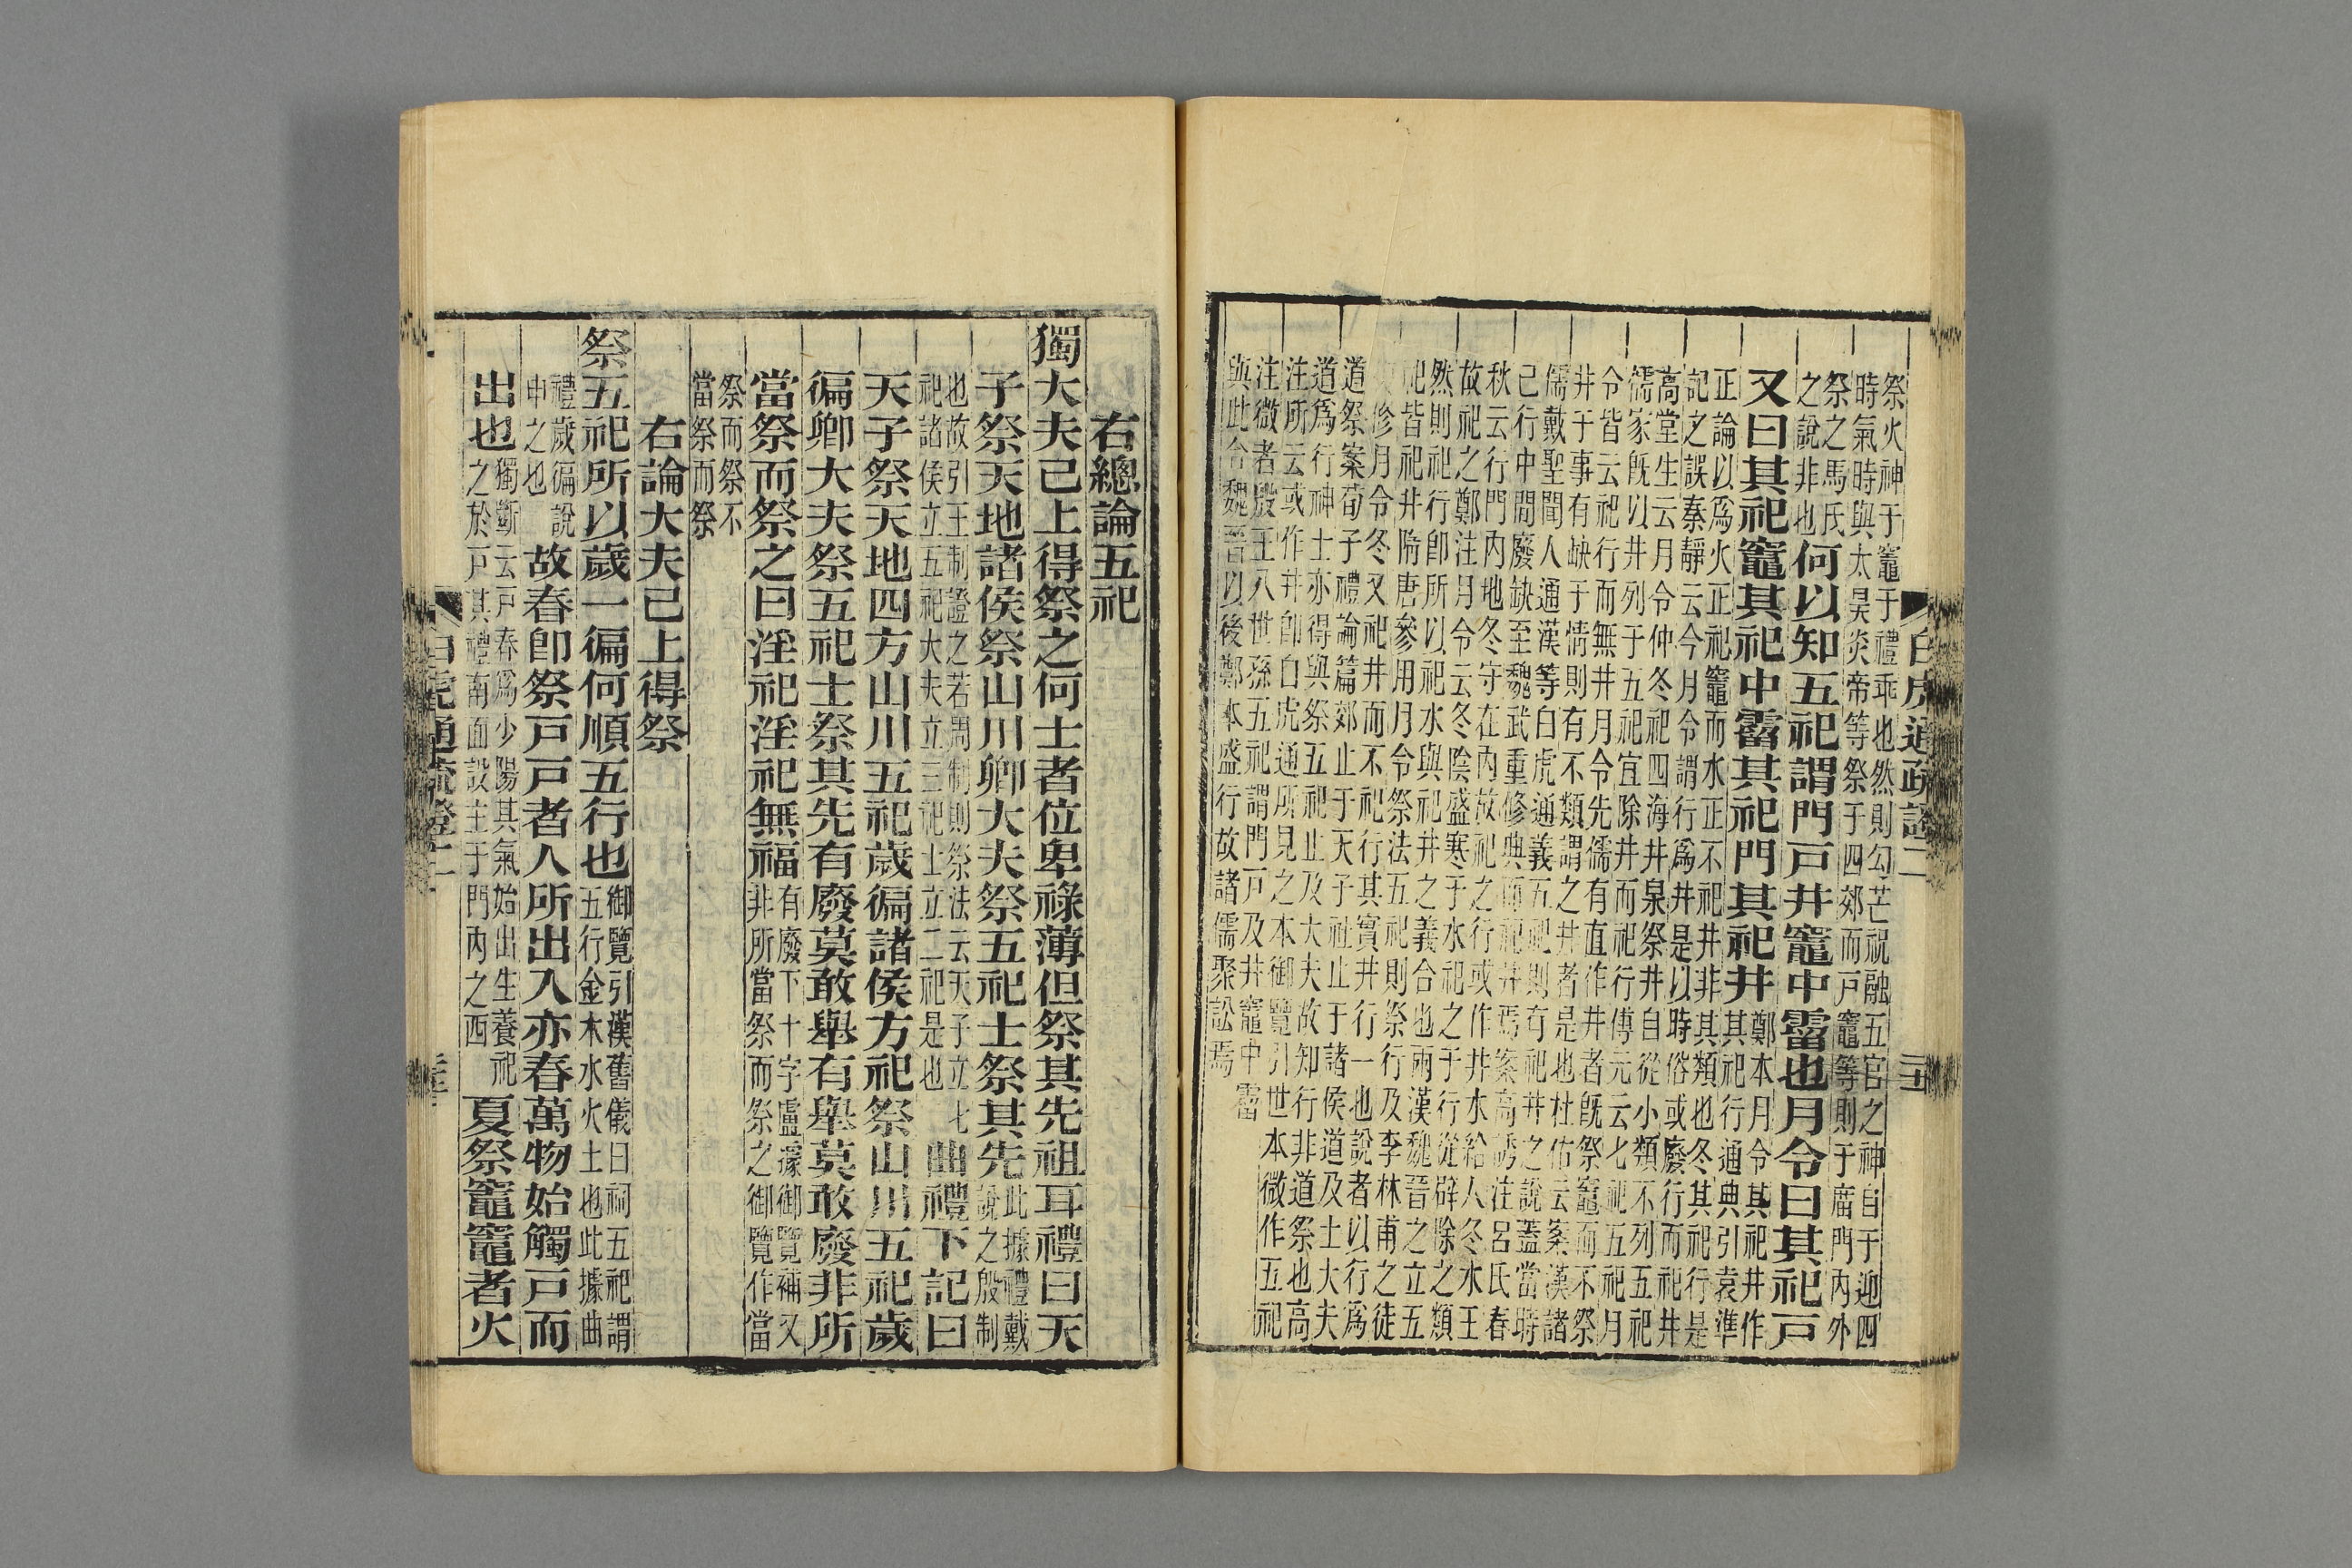 祭火神于竈于禮乖也然則勾芒祝融五官之神自于迎四
時氣時與太昊炎帝等祭于四郊而戶竈等則于廟門內外
祭之馬氏
之說非也
何以知五祀謂門戶井竈中霤也月令曰其祀戶
又曰其祀竈其祀中霤其祀門其祀井
鄭本月令其祀井作
其祀行通典引袁準
正論以爲火正祀竈而水正不祀井非其類也冬其祀行是
記之誤秦靜云今月令謂行爲井是以時俗或廢行而祀井
高堂生云月令仲冬祀四海井泉祭井自從小類不列五祀
儒家旣以井列于五祀宜除井而祀行傅元云七祀五祀月
令皆云祀行而無井月令先儒有直作井者旣祭竈而不祭
井于事有缺于情則有不類謂之井者是也杜佑云案漢諸
儒戴聖聞人通漢等白虎通義五祀則有祀井之說蓋當時
已行中間廢缺至魏武重修典而祀井焉案高誘注呂氏春
秋云行門內地冬守在內故祀之行或作井水給人冬水王
故祀之鄭注月令云冬陰盛寒于水祀之于行從辟除之類
然則祀行卽所以祀水與祀井之義合也兩漢魏晉之立五
祀皆祀井隋唐參用月令祭法五祀則祭行及李林甫之徒
修月令冬又祀井而不祀行其實井行一也說者以行爲
道祭案荀子禮論篇郊止于天子社止于諸侯道及士大夫
道爲行神士亦得與祭五祀止及大夫故知行非道祭也高
注所云或作井卽白虎通所見之本御覽引世本微作五祀
注微者殷王八世孫五祀謂門戶及井竈中霤
與此合魏晉以後鄭本盛行故諸儒聚訟焉
白虎通疏證二
右總論五祀
獨大夫已上得祭之何士者位卑祿薄但祭其先祖耳禮曰天
子祭天地諸侯祭山川卿大夫祭五祀士祭其先
此據禮戴
說之殷制
也故引王制證之若周制則祭法云天子立七
祀諸侯立五祀大夫立三祀士立二祀是也
曲禮下記曰
天子祭天地四方山川五祀歲徧諸侯方祀祭山川五祀歲
徧卿大夫祭五祀士祭其先有廢莫敢舉有舉莫敢廢非所
當祭而祭之曰淫祀淫祀無福
有廢下十字盧據御覽補又
非所當祭而祭之御覽作當
祭而祭不
當祭而祭
右論大夫已上得祭
祭五祀所以歲一徧何順五行也
御覽引漢舊儀曰祠五祀謂
五行金木水火土也此據曲
禮歲徧說
申之也
故春卽祭戶戶者人所出入亦春萬物始觸戶而
出也
獨斷云戶春爲少陽其氣始出生養祀
之於戶其禮南面設主于門內之西
夏祭竈竈者火
白虎通疏證二